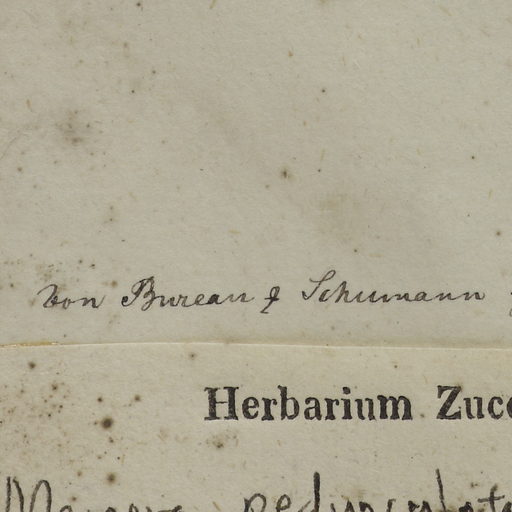 von Bureau & Schumann
Herbarium Zucc
pedunculat